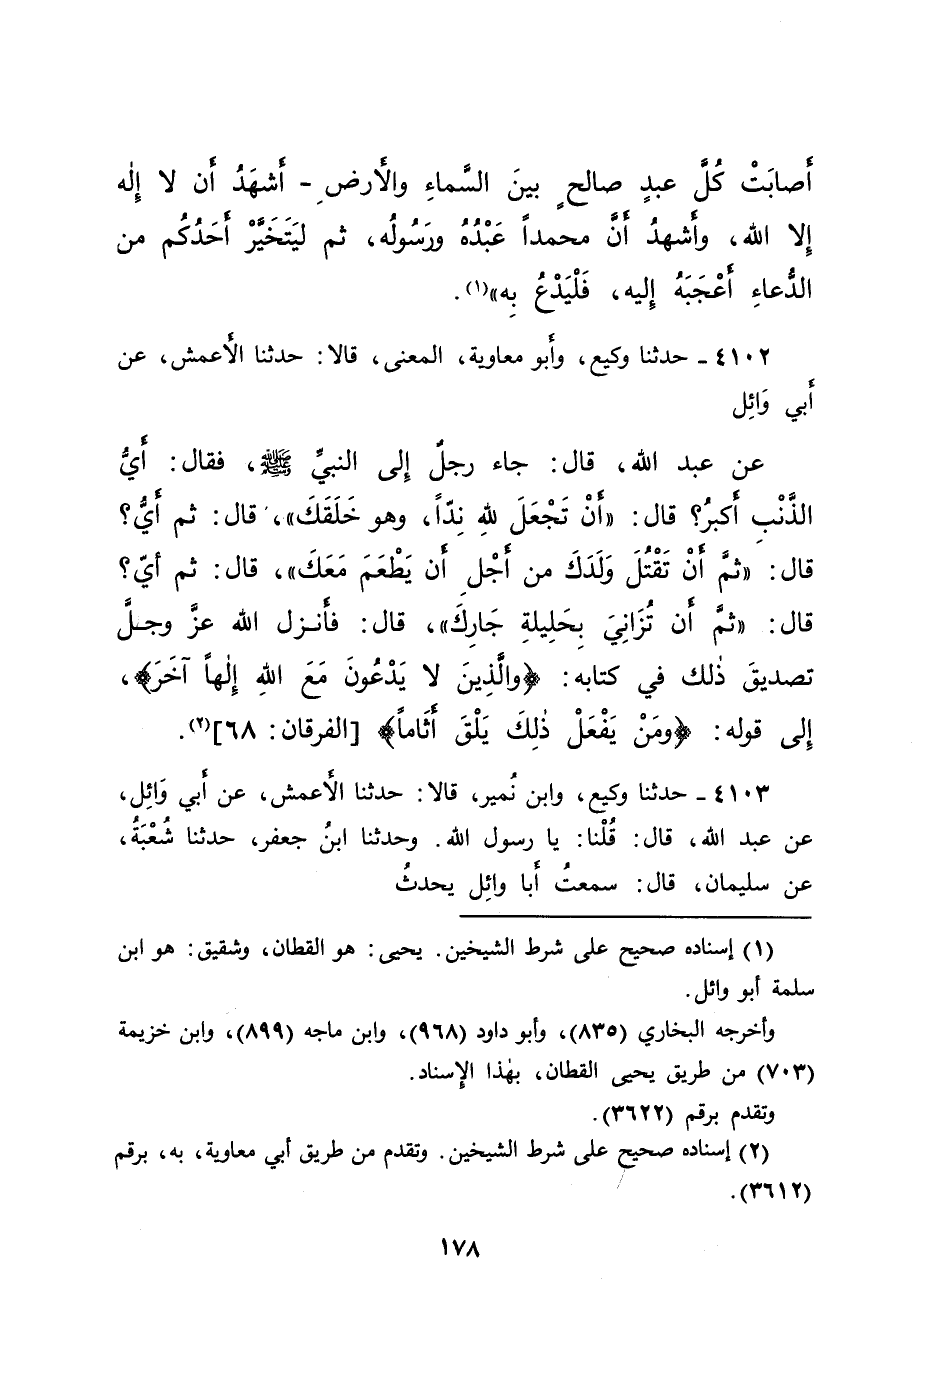 أَصابَتْ كُلَّ عبدٍ صالحٍ بينَ السَّماءِ والأَرضِ - أَشهَدُ أَن لا إِلٰه
إِلا الله، وأَشهدُ أَنَّ محمداً عَبْدُهُ ورَسُولُه، ثم ليَتَخَيَّرْ أَحَدُكُم من
الدُّعاءِ أَعْجَبَهُ إِليه، فَلْيَدْعُ بِه»(١).
٤١٠٢ ـ حدثنا وكيع، وأَبو معاوية، المعنى، قالا: حدثنا الأَعمش، عن
أَبي وَائِل
عن عبد الله، قال: جاء رجلٌ إِلى النبيِّ ﷺ، فقال: أَيُّ
الذَّنْبِ أَكبرُ؟ قال: «أَنْ تَجْعَلَ للهِ نِدّاً، وهو خَلَقَكَ»، قال: ثم أَيُّ؟
قال: «ثمَّ أَنْ تَقْتُلَ وَلَدَكَ من أَجْلِ أَن يَطْعَمَ مَعَكَ»، قال: ثم أيّ؟
قال: «ثمَّ أَن تُزَانِيَ بِحَلِيلةِ جَارِكَ»، قال: فأَنزل الله عزَّ وجلَّ
تصديقَ ذٰلك في كتابه: ﴿والَّذِينَ لا يَدْعُونَ مَعَ اللهِ إِلٰهاً آخَرَ﴾،
إِلى قوله: ﴿ومَنْ يَفْعَلْ ذٰلِكَ يَلْقَ أَثَاماً﴾ [الفرقان: ٦٨](٢).
٤١٠٣ ـ حدثنا وكيع، وابن نُمير، قالا: حدثنا الأَعمش، عن أَبي وَائِل،
عن عبد الله، قال: قُلْنا: يا رسول الله. وحدثنا ابنُ جعفر، حدثنا شُعْبَةُ،
عن سليمان، قال: سمعتُ أَبا وائِل يحدثُ
(١) إسناده صحيح على شرط الشيخين. يحيى: هو القطان، وشقيق: هو ابن
سلمة أبو وائل.
وأخرجه البخاري (٨٣٥)، وأبو داود (٩٦٨)، وابن ماجه (٨٩٩)، وابن خزيمة
(٧٠٣) من طريق يحيى القطان، بهٰذا الإسناد.
وتقدم برقم (٣٦٢٢).
(٢) إسناده صحيح على شرط الشيخين. وتقدم من طريق أبي معاوية، به، برقم
(٣٦١٢).
١٧٨